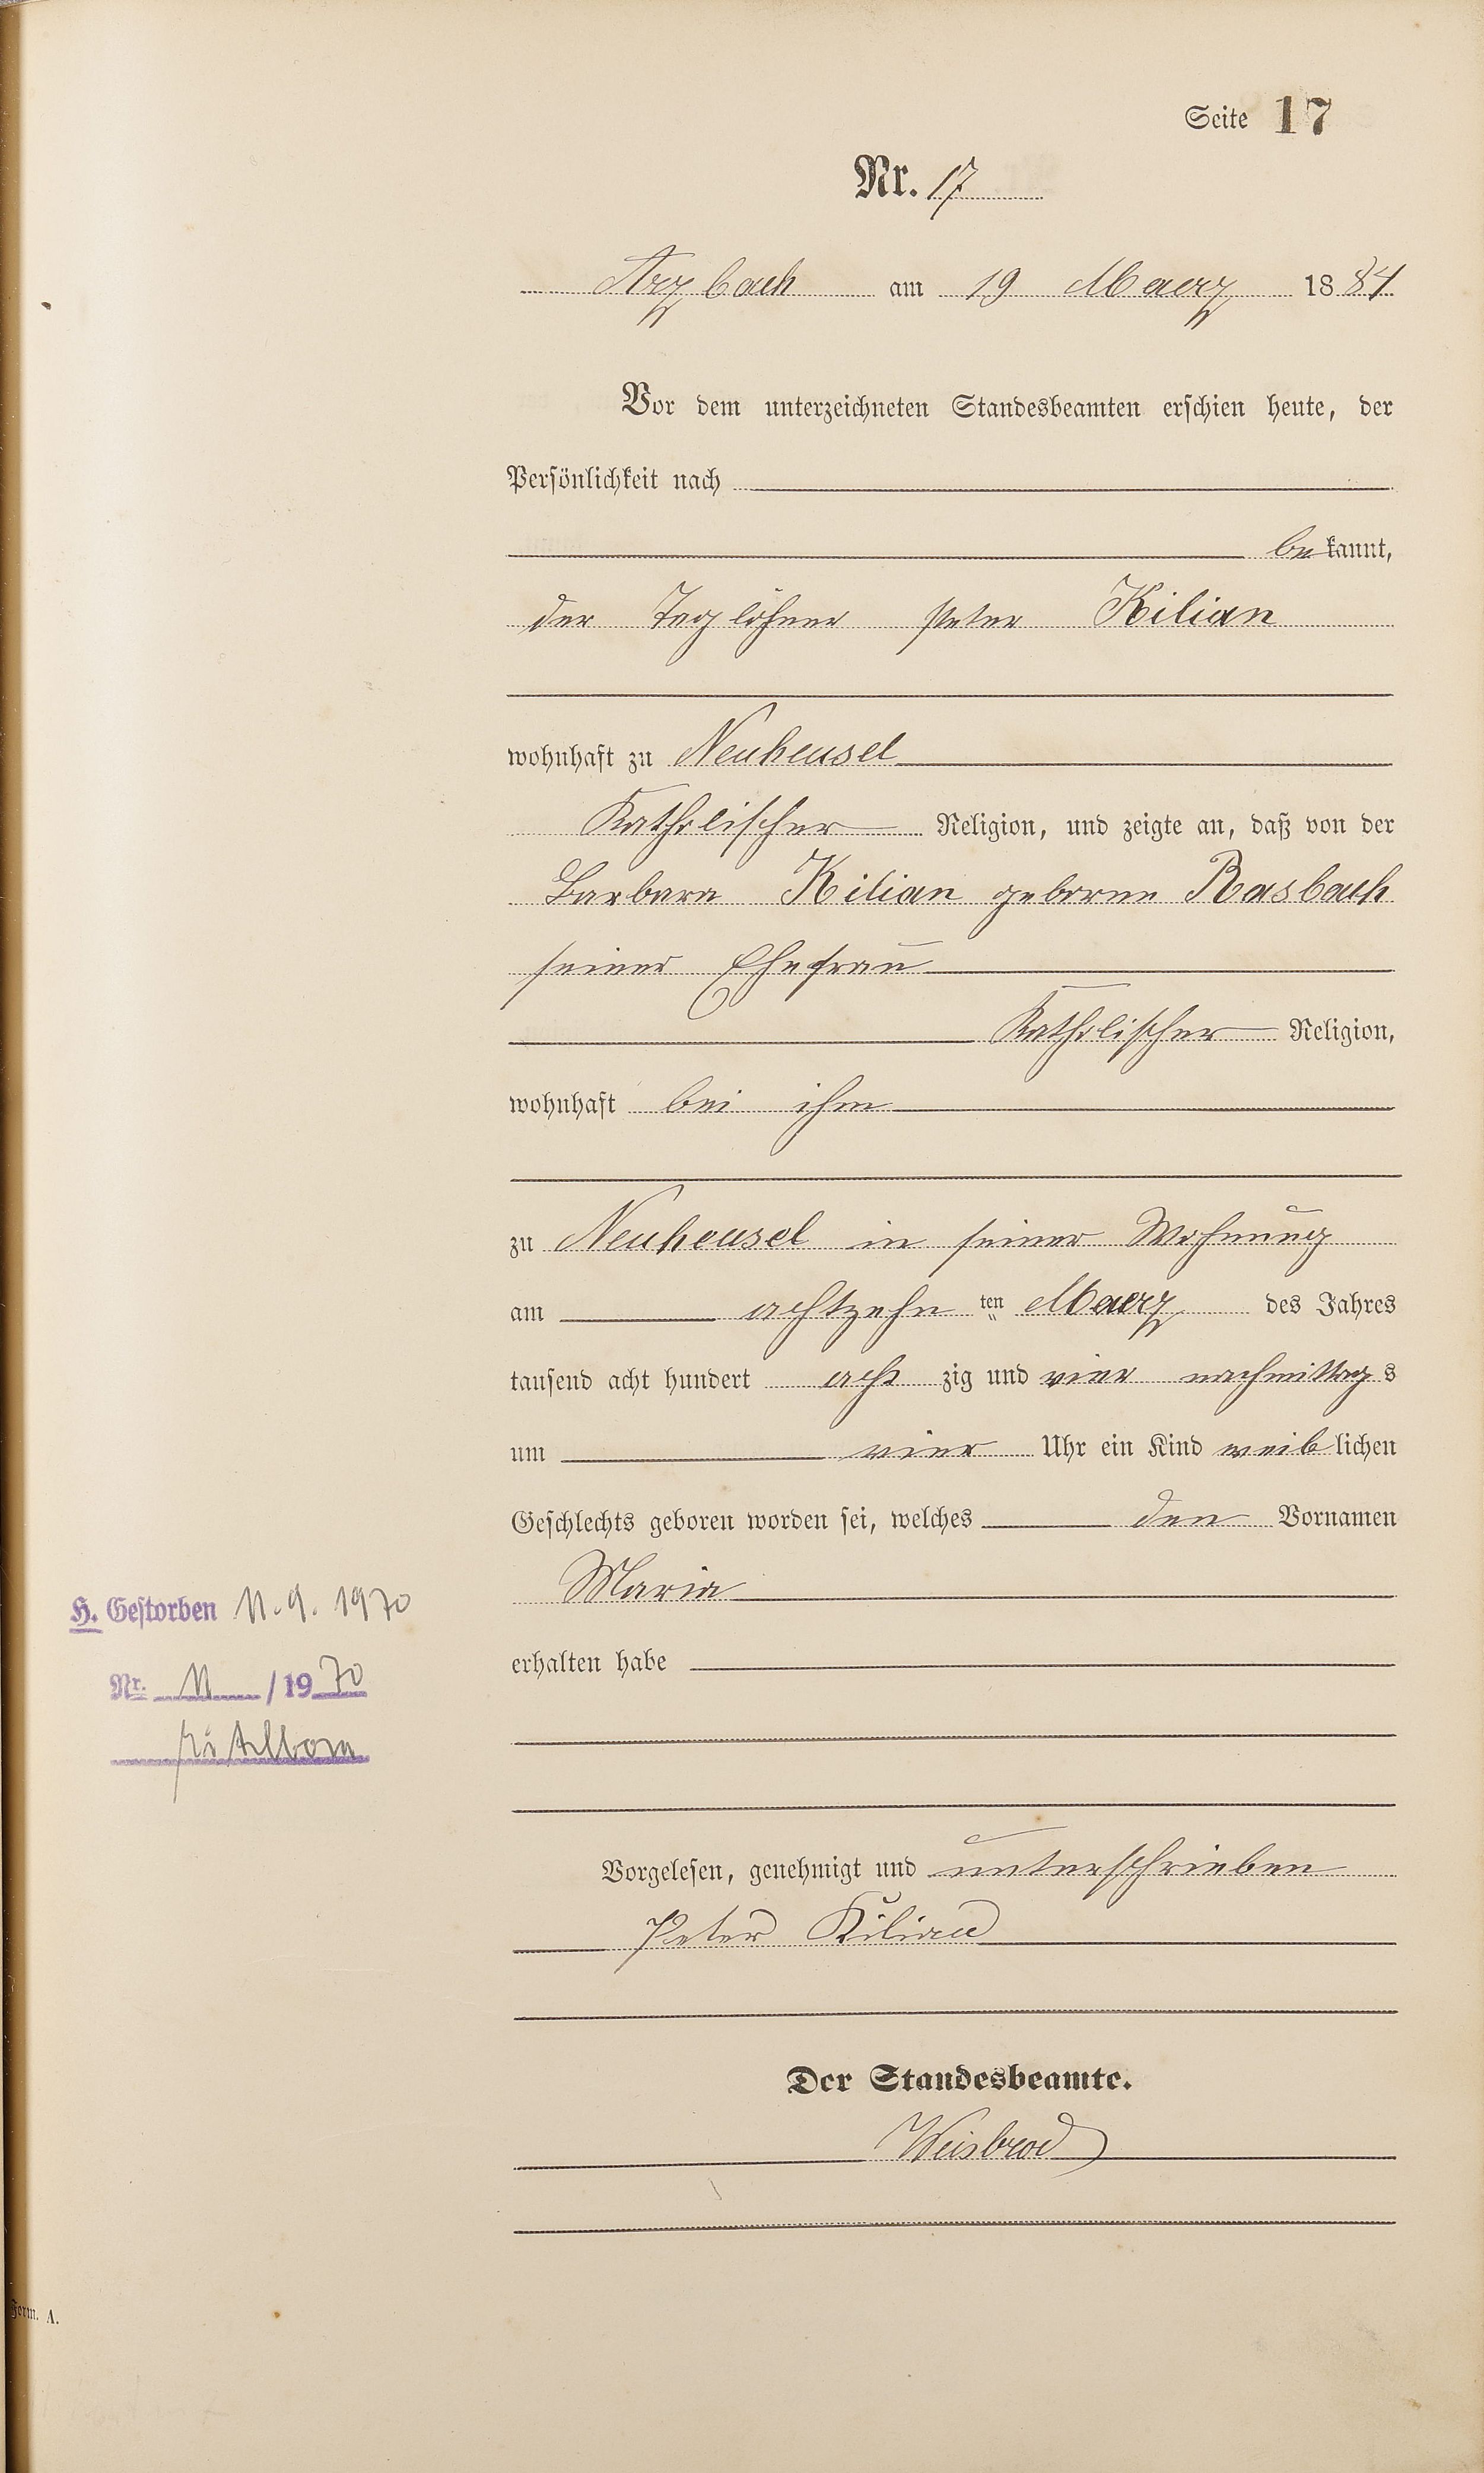 Seite 17
Nr. 17
Arzbach am 19 Maerz 1884
Vor dem unterzeichneten Standesbeamten erschien heute, der
Persönlichkeit nach
bekannt,
der Taglöhner Peter Kilian
wohnhaft zu Neuheusel
Katholischer Religion, und zeigte an, daß von der
Barbara Kilian geborne Rasbach
seiner Ehefrau
Katholischer Religion,
wohnhaft bei ihm
zu Neuheusel in seiner Wohnung
am achtzehn ten Maerz des Jahres
tausend acht hundert acht zig und vier nachmittags
um vier Uhr ein Kind weiblichen
Geschlechts geboren worden sei, welches den Vornamen
Maria
H. Gestorben 11.9.1970
erhalten habe
Nr. 11 / 1970
Vorgelesen, genehmigt und unterschrieben
Peter Kilian
Der Standesbeamte.
Weisbrod
Form. A.